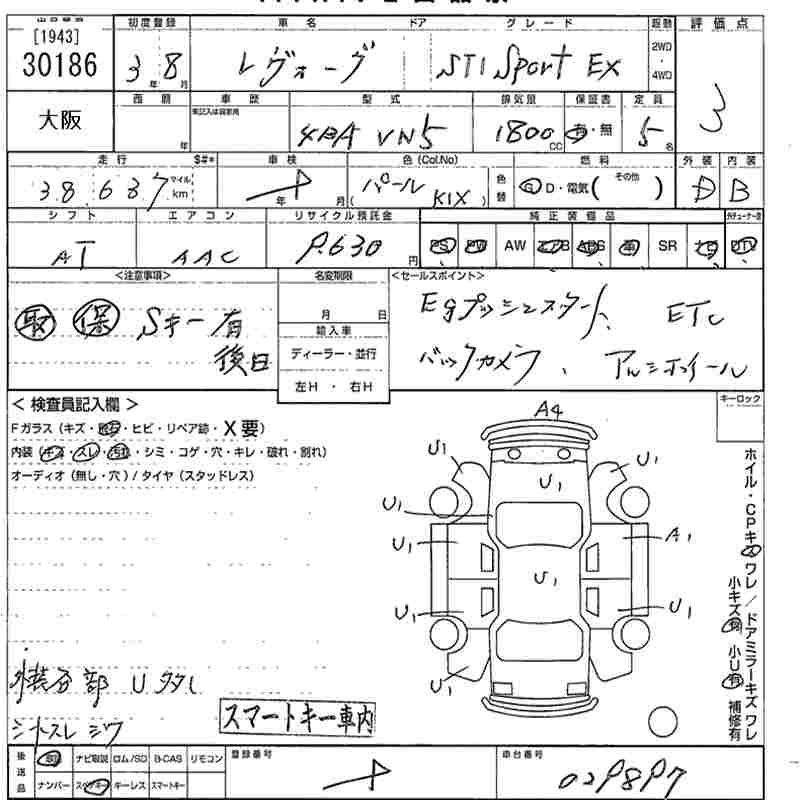 [1943] 初度登録 車名 ドア グレード 駆動 評価点
30186 3年 8月 レヴォーグ STI Sport EX 2WD・4WD 3
大阪 西暦 年 車歴 型式 排気量 保証書 定員
未記入は自家用 4BA VN5 1800 CC 有・無 5名
走行 $#* 車検 色(Col.No) 燃料 外装 内装
38,637 マイル km 年 月 パール ( K1X ) 色替 G D・電気( その他 ) D B
シフト エアコン リサイクル預託金 純正装備品
AT AAC 9,630 円 PS PW AW ABS 革 SR ナビ TV
<注意事項> 名変期限 <セールスポイント>
取 保 Sキー有 月 日 Egプッシュスタート、 ETC
後日 輸入車 バックカメラ、 アルミホイール
ディーラー・並行
左H・右H
< 検査員記入欄 > キーロック
Fガラス (キズ・ ・ヒビ・リペア跡・X要)
内装 (キズ・スレ・汚れ・シミ・コゲ・穴・キレ・破れ・割れ)
オーディオ (無し・穴) / タイヤ (スタッドレス)
A4
U1 U1
U1
U1
U1 A1
U1
U1 U1
U1
ホイル・CPキズ ワレ / ドアミラーキズ ワレ
小キズ有 小U有 補修有
外装各部 Uタタし
シートスレ シワ
スマートキー車内
後送品 取説 ナビ取説 ロム/SD B-CAS リモコン 登録番号 車台番号
ナンバー スペアキー キーレス スマートキー 029897